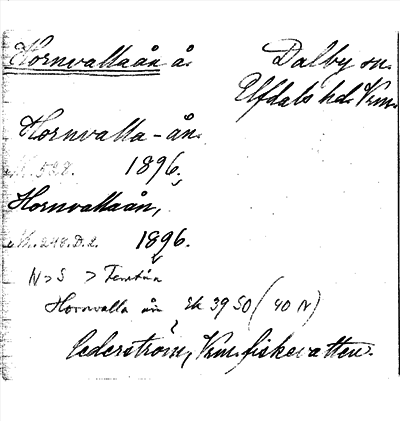 Hornvallaån å.
Dalby sn.
Elfdals hd. Vrm.
Hornvalla-ån.
N. 528. 1896.
Hornvallaån,
N. 248. D. 2. 1896.
N > S >
Hornvalla ån Ek 39 SO (40 N)
Cederström, Vrm. fiskevatten.